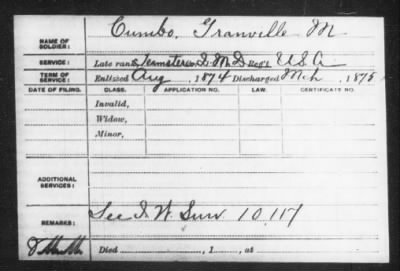 NAME OF SOLDIER: Cumbo, Granville M
SERVICE: Late rank, Teamster Q. M. D Reg't U S A
TERM OF SERVICE: Enlisted Aug , 1874 Discharged Mch , 1875
DATE OF FILING. CLASS. APPLICATION NO. LAW: CERTIFICATE NO.
Invalid,
Widow,
Minor,
ADDITIONAL SERVICES:
REMARKS: See I. W. Surv 10,117
Died , 1 , at